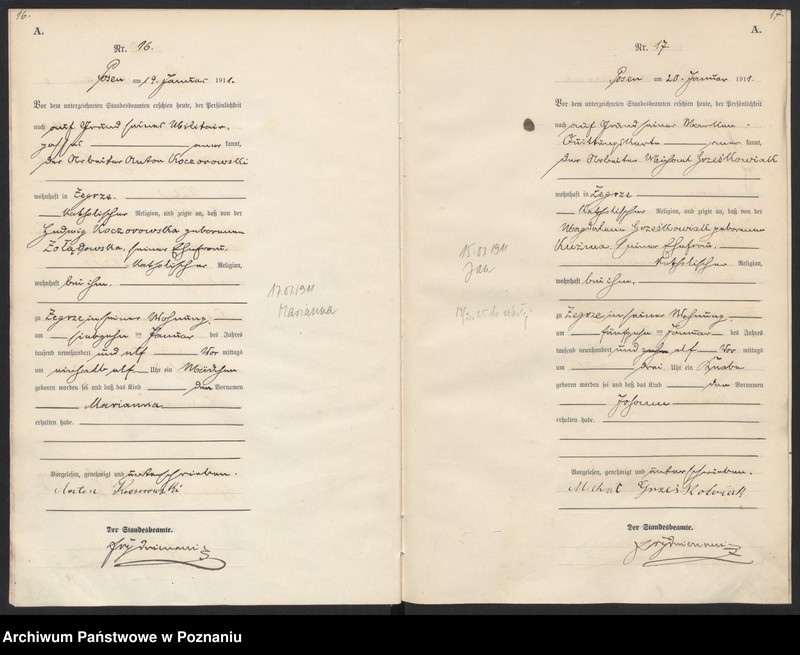 16.
A.
Nr. 16.
Posen am 19. Januar 1911.
Vor dem unterzeichneten Standesbeamten erschien heute, der Persönlichkeit
nach auf Grund seines Militair-
passes aner kannt,
der Arbeiter Anton Koczorowski
wohnhaft in Zegrze.
katholischer Religion, und zeigte an, daß von der
Ludwig Koczorowska geborenen
Zołądowska, seiner Ehefrau,
katholischer Religion,
wohnhaft bei ihm,
zu Zegrze in seiner Wohnung,
am siebzehn ten Januar des Jahres
tausend neunhundert und elf Vor mittags
um einhalb elf Uhr ein Mädchen
geboren worden sei und daß das Kind den Vornamen
Marianna
erhalten habe.
Vorgelesen, genehmigt und unterschrieben.
Anton
Der Standesbeamte.
17.01.1911
Marianna
17.
A.
Nr. 17
Posen am 20. Januar 1911.
Vor dem unterzeichneten Standesbeamten erschien heute, der Persönlichkeit
nach auf Grund seiner Marken-
Quittungskarte aner kannt,
der Arbeiter Michael Grześkowiak
wohnhaft in Zegrze
katholischer Religion, und zeigte an, daß von der
Magdalena Grześkowiak geborenen
Kuzma, seiner Ehefrau,
katholischer Religion,
wohnhaft bei ihm,
zu Zegrze in seiner Wohnung,
am fünfzehn ten Januar des Jahres
tausend neunhundert und zehn elf Vor mittags
um drei Uhr ein Knabe
geboren worden sei und daß das Kind den Vornamen
Johann
erhalten habe.
Vorgelesen, genehmigt und unterschrieben.
Michał Grześkowiak
Der Standesbeamte.
15.01.1911
Jan
Archiwum Państwowe w Poznaniu